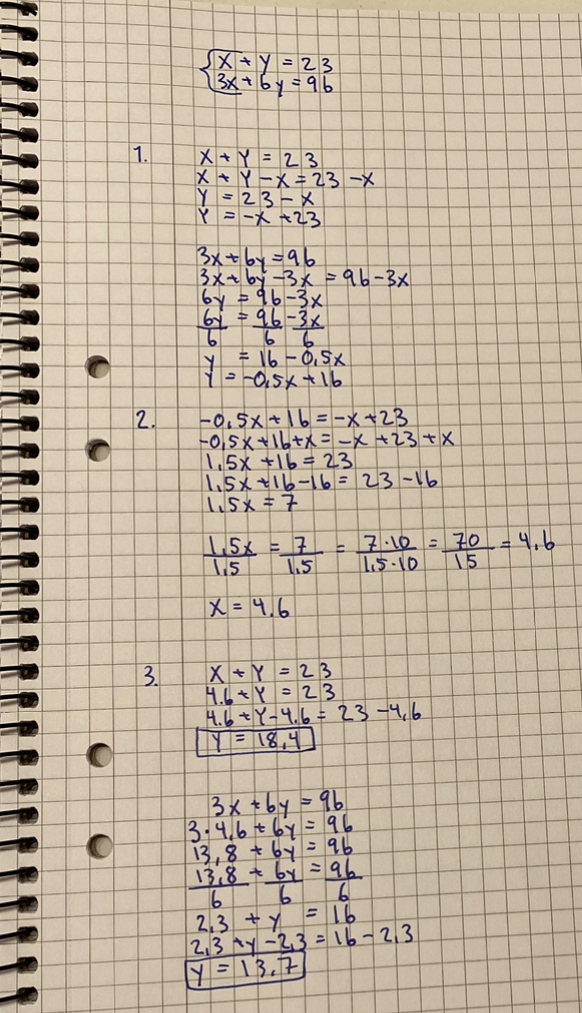 x + y = 23
3x + 6y = 96
1. x + y = 23
x + y - x = 23 - x
y = 23 - x
y = -x + 23
3x + 6y = 96
3x + 6y - 3x = 96 - 3x
6y = 96 - 3x
6y/6 = 96/6 - 3x/6
y = 16 - 0,5x
y = -0,5x + 16
2. -0,5x + 16 = -x + 23
-0,5x + 16 + x = -x + 23 + x
1,5x + 16 = 23
1,5x + 16 - 16 = 23 - 16
1,5x = 7
1,5x/1,5 = 7/1,5 = 7·10/1,5·10 = 70/15 = 4.6
x = 4.6
3. x + y = 23
4.6 + y = 23
4.6 + y - 4.6 = 23 - 4,6
y = 18,4
3x + 6y = 96
3·4,6 + 6y = 96
13,8 + 6y = 96
13,8/6 + 6y/6 = 96/6
2,3 + y = 16
2,3 + y - 2,3 = 16 - 2,3
y = 13.7